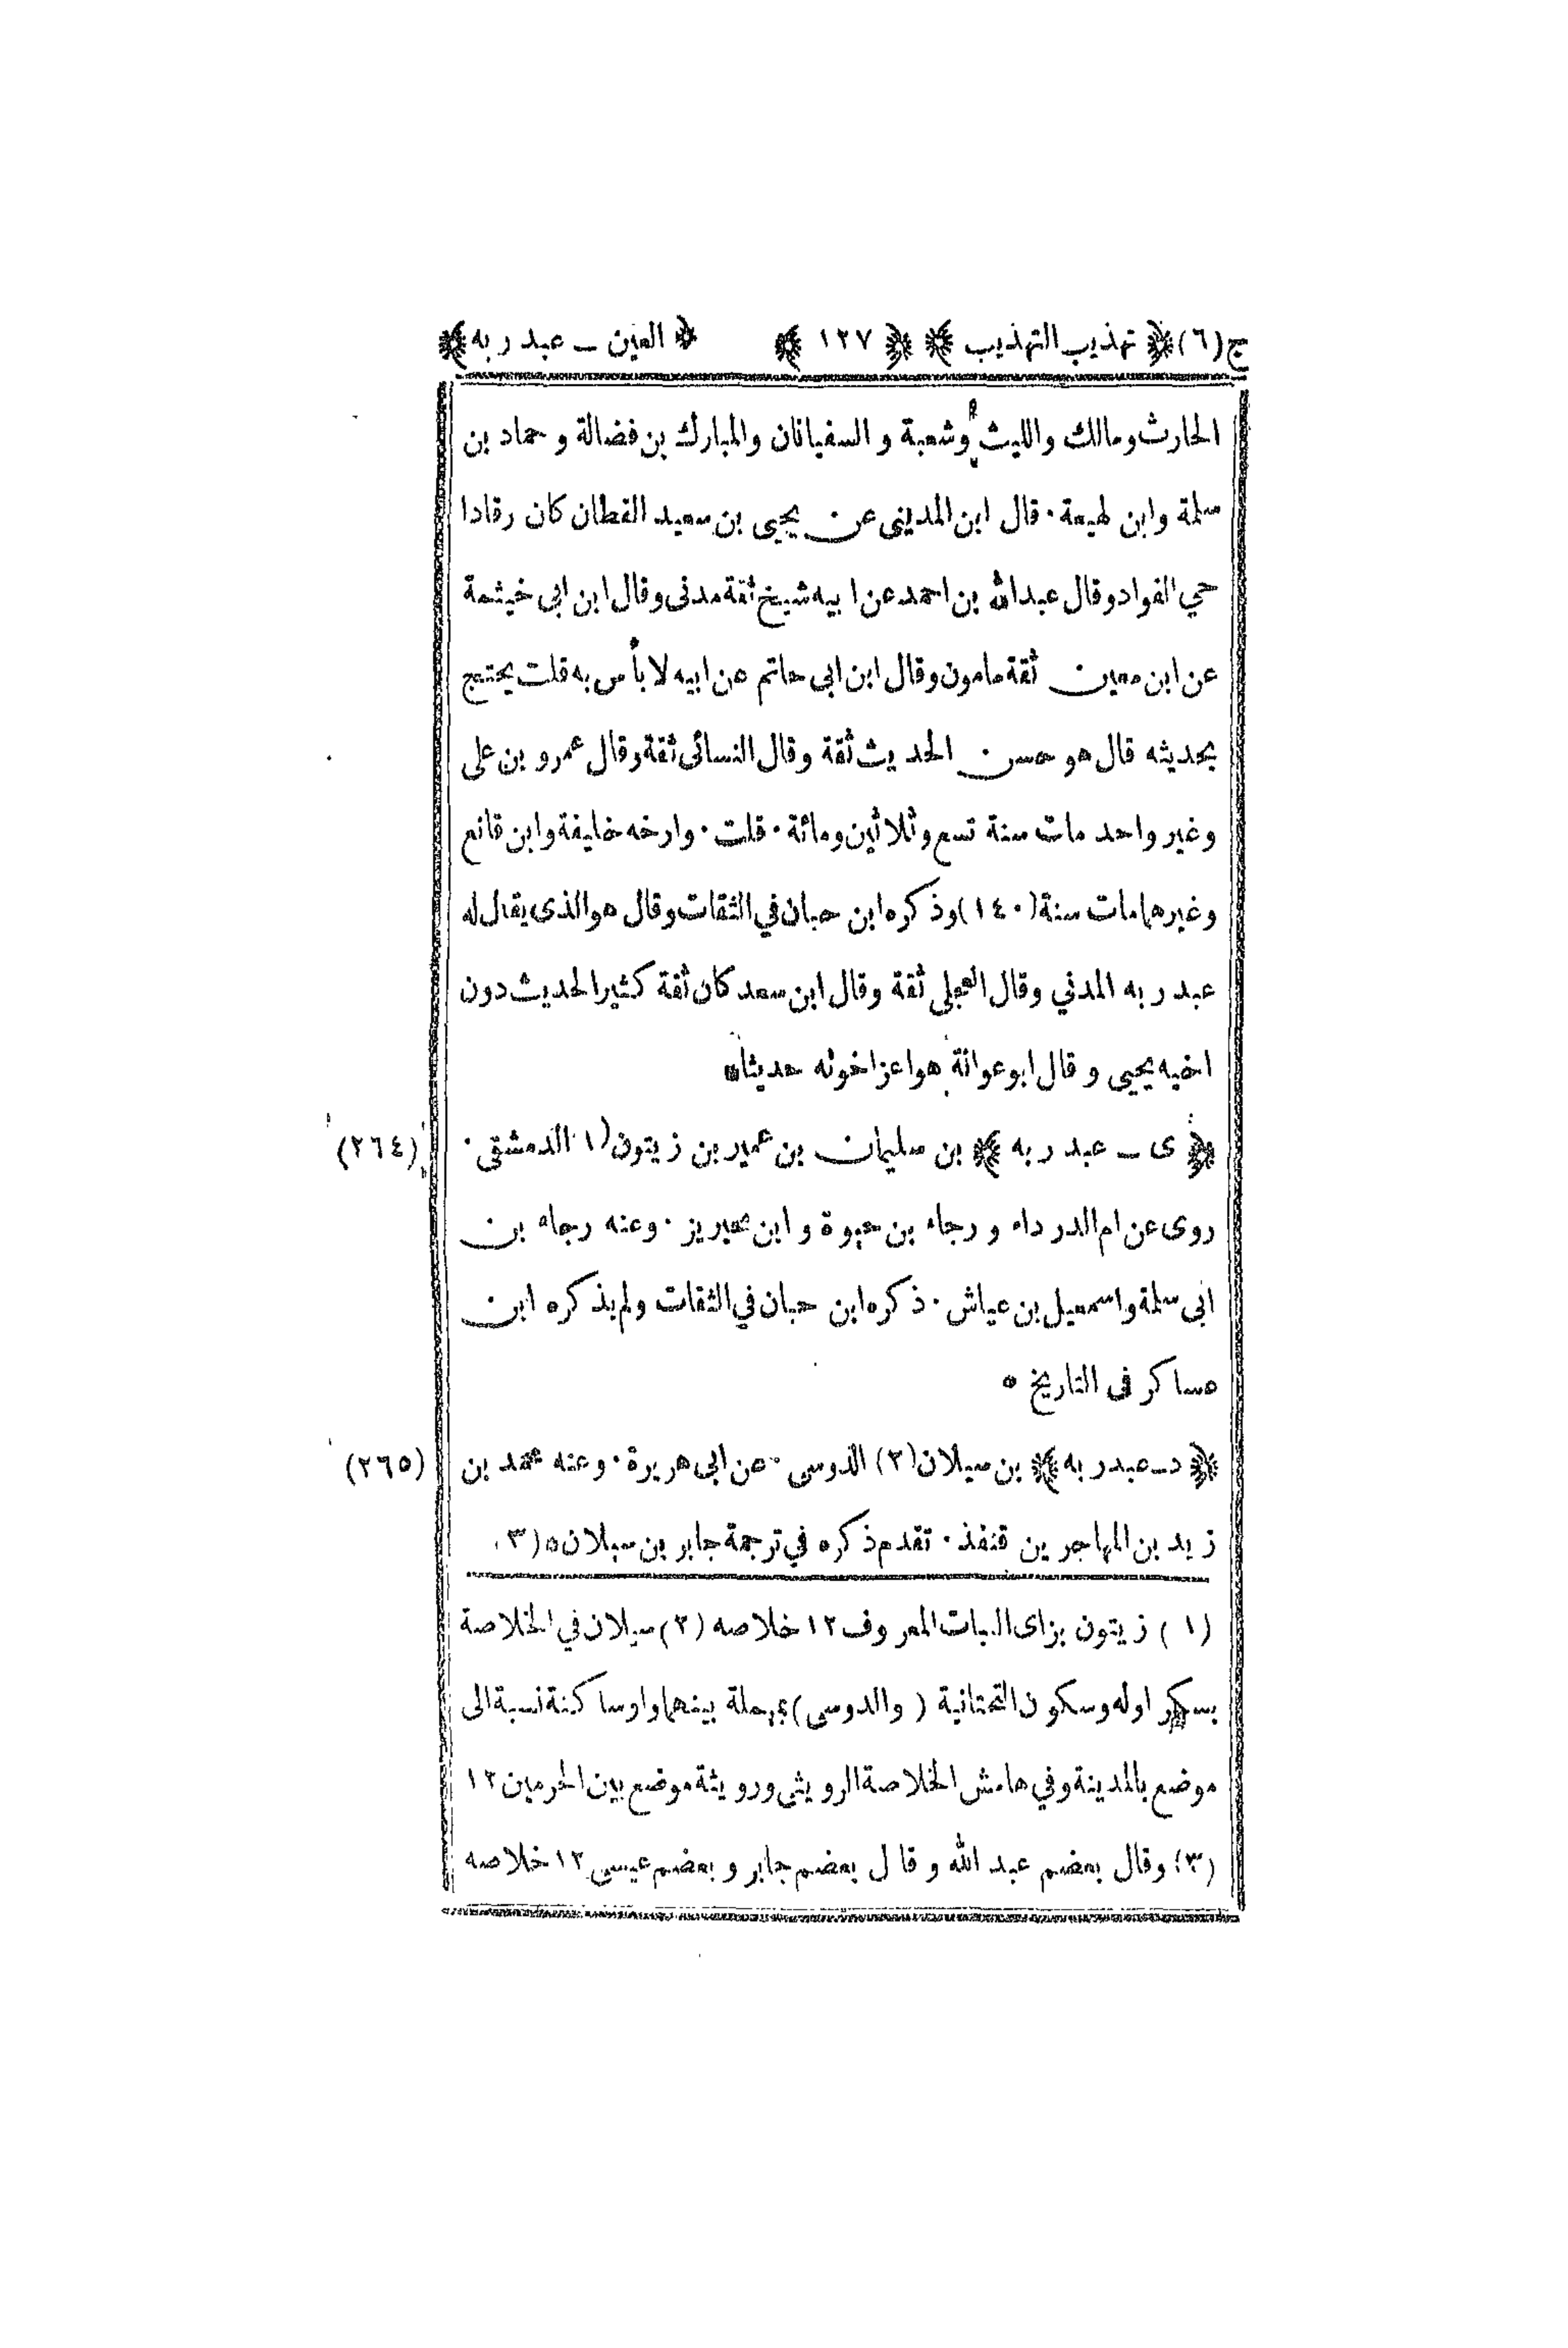 ج(٦) ﴿ تهذيب التهذيب ﴾ ﴿ ١٢٧ ﴾ ﴿ العين ــ عبد ربه ﴾
الحارث ومالك والليث وشعبة و السفيانان والمبارك بن فضالة و حماد بن
سلمة وابن لهيعة ٠ قال ابن المديني عن يحيى بن سعيد القطان كان رقادا
حي الفواد وقال عبدالله بن احمد عن ابيه شيخ ثقة مدنى وقال ابن ابي خيثمة
عن ابن معين ثقة مامون وقال ابن ابى حاتم عن ابيه لا بأس به قلت يحتج
بحديثه قال هو حسن الحديث ثقة وقال النسائى ثقة وقال عمرو بن على
وغير واحد مات سنة تسع وثلاثين ومائة ٠ قلت ٠ وارخه خليفة وابن قانع
وغيرهما مات سنة (١٤٠) وذكره ابن حبان في الثقات وقال هو الذى يقال له
عبد ربه المدني وقال العجلى ثقة وقال ابن سعد كان ثقة كثير الحديث دون
اخيه يحيى و قال ابو عوانة هو اعز اخوته حديثا٥
﴿ ى ــ عبد ربه ﴾ بن سليمان بن عمير بن زيتون(١ الدمشقى ٠ (٢٦٤)
روى عن ام الدرداء و رجاء بن حيوة و ابن محيريز ٠ وعنه رجاء بن
ابى سلمة واسمعيل بن عياش ٠ ذكره ابن حبان في الثقات ولم يذكره ابن
عساكر فى التاريخ ٥
﴿ د ــ عبد ربه ﴾ بن سيلان(٢) الدوسى ٠ عن ابى هريرة ٠ وعنه محمد بن (٢٦٥)
زيد بن المهاجر بن قنفذ ٠ تقدم ذكره في ترجمة جابر بن سيلان٥(٣
(١) زيتون بزاى النبات المعروف ١٢ خلاصه (٢) سيلان في الخلاصة
بسكر اوله وسكون التحتانية ( والدوسى) بمهملة بينهما واو ساكنة نسبة الى
موضع بالمدينة وفي هامش الخلاصة الرويثى ورويثة موضع بين الحرمين ١٢
(٣) وقال بعضم عبد الله و قال بعضم جابر و بعضم عيسى ١٢ خلاصه